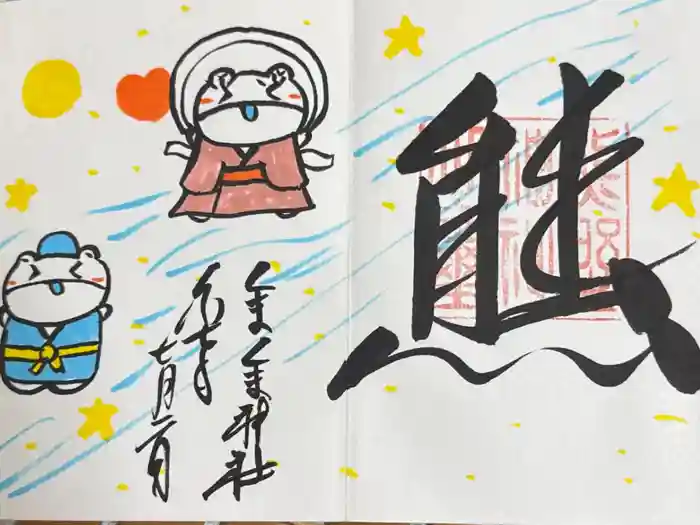 熊
くまくま神社
令七年
七月二日